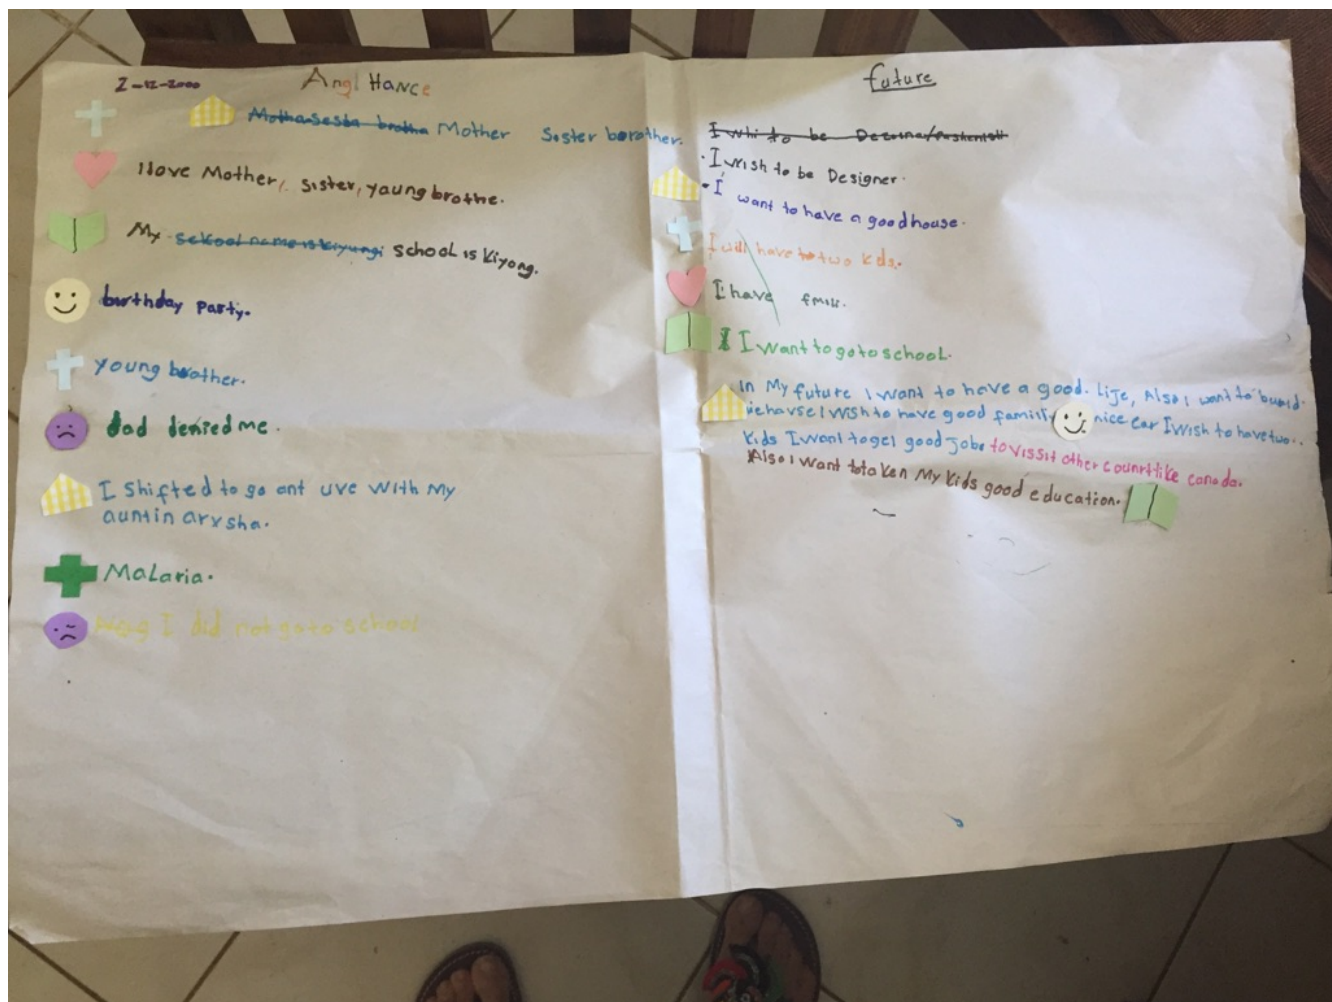 2-12-2000
Angl Hance
Mother Sister borother.
I love Mother, sister, yaung brothe.
My school name is kiyungi school is Kiyong.
birthday party.
young brother.
dad denied me.
I shifted to go ant uve with My
auntin arxsha.
Malaria.
I did not go to school
future
I whi to be
I wish to be Designer.
I want to have a good house.
I will have to two kds.
I have
I want to go to school.
In My future I want to have a good. Life, Also I want to
I wish to have good family nice car I wish to have two..
kids I want to get good jobe to vissit other counrt like canada.
Also I want to taken My kids good education.